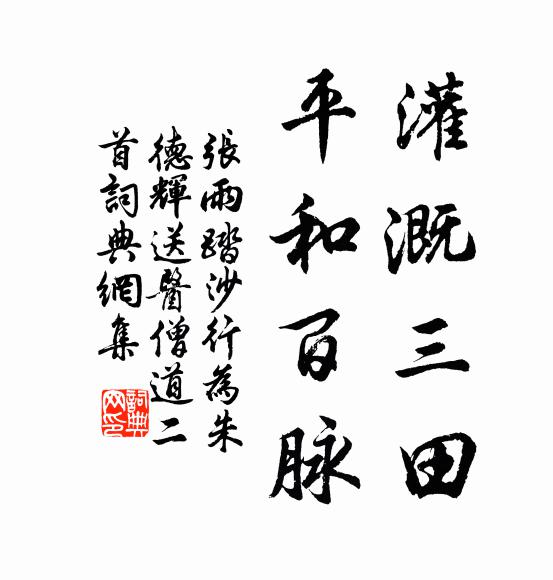 灌溉三田
平和百脉
張雨踏沙行為朱
德輝送醫僧道二
首詞典網集
詞典
网印